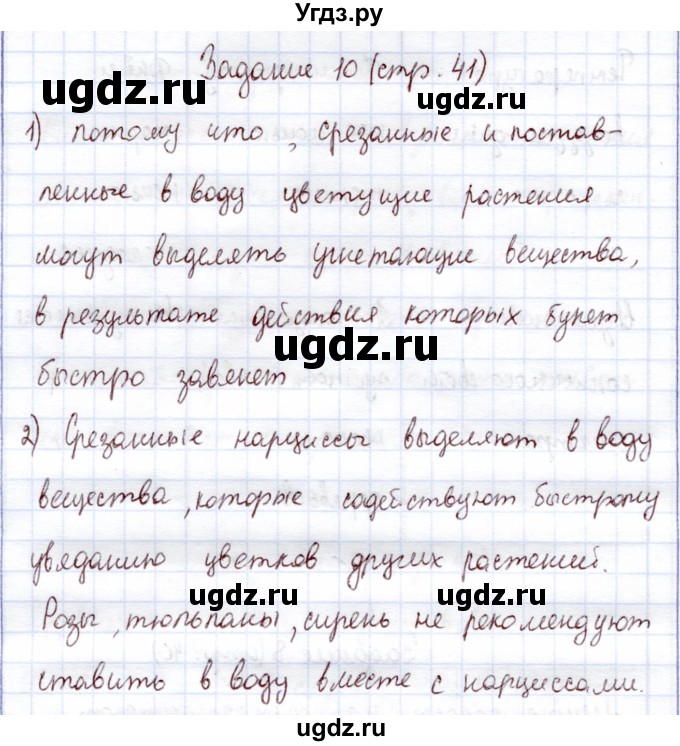 Угдз.ру
Задание 10 (стр. 41)
ugdz.ru ugdz.ru
1) потому что, срезанные и постав-
ленные в воду цветущие растения
могут выделять угнетающие вещества,
в результате действия которых букет
ugdz.ru
быстро завянет
2) Срезанные нарциссы выделяют в воду
вещества, которые содействуют быстрому
увяданию цветков других растений.
ugdz.ru ugdz.ru
Розы, тюльпаны, сирень не рекомендуют
ставить в воду вместе с нарциссами.
ugdz.ru